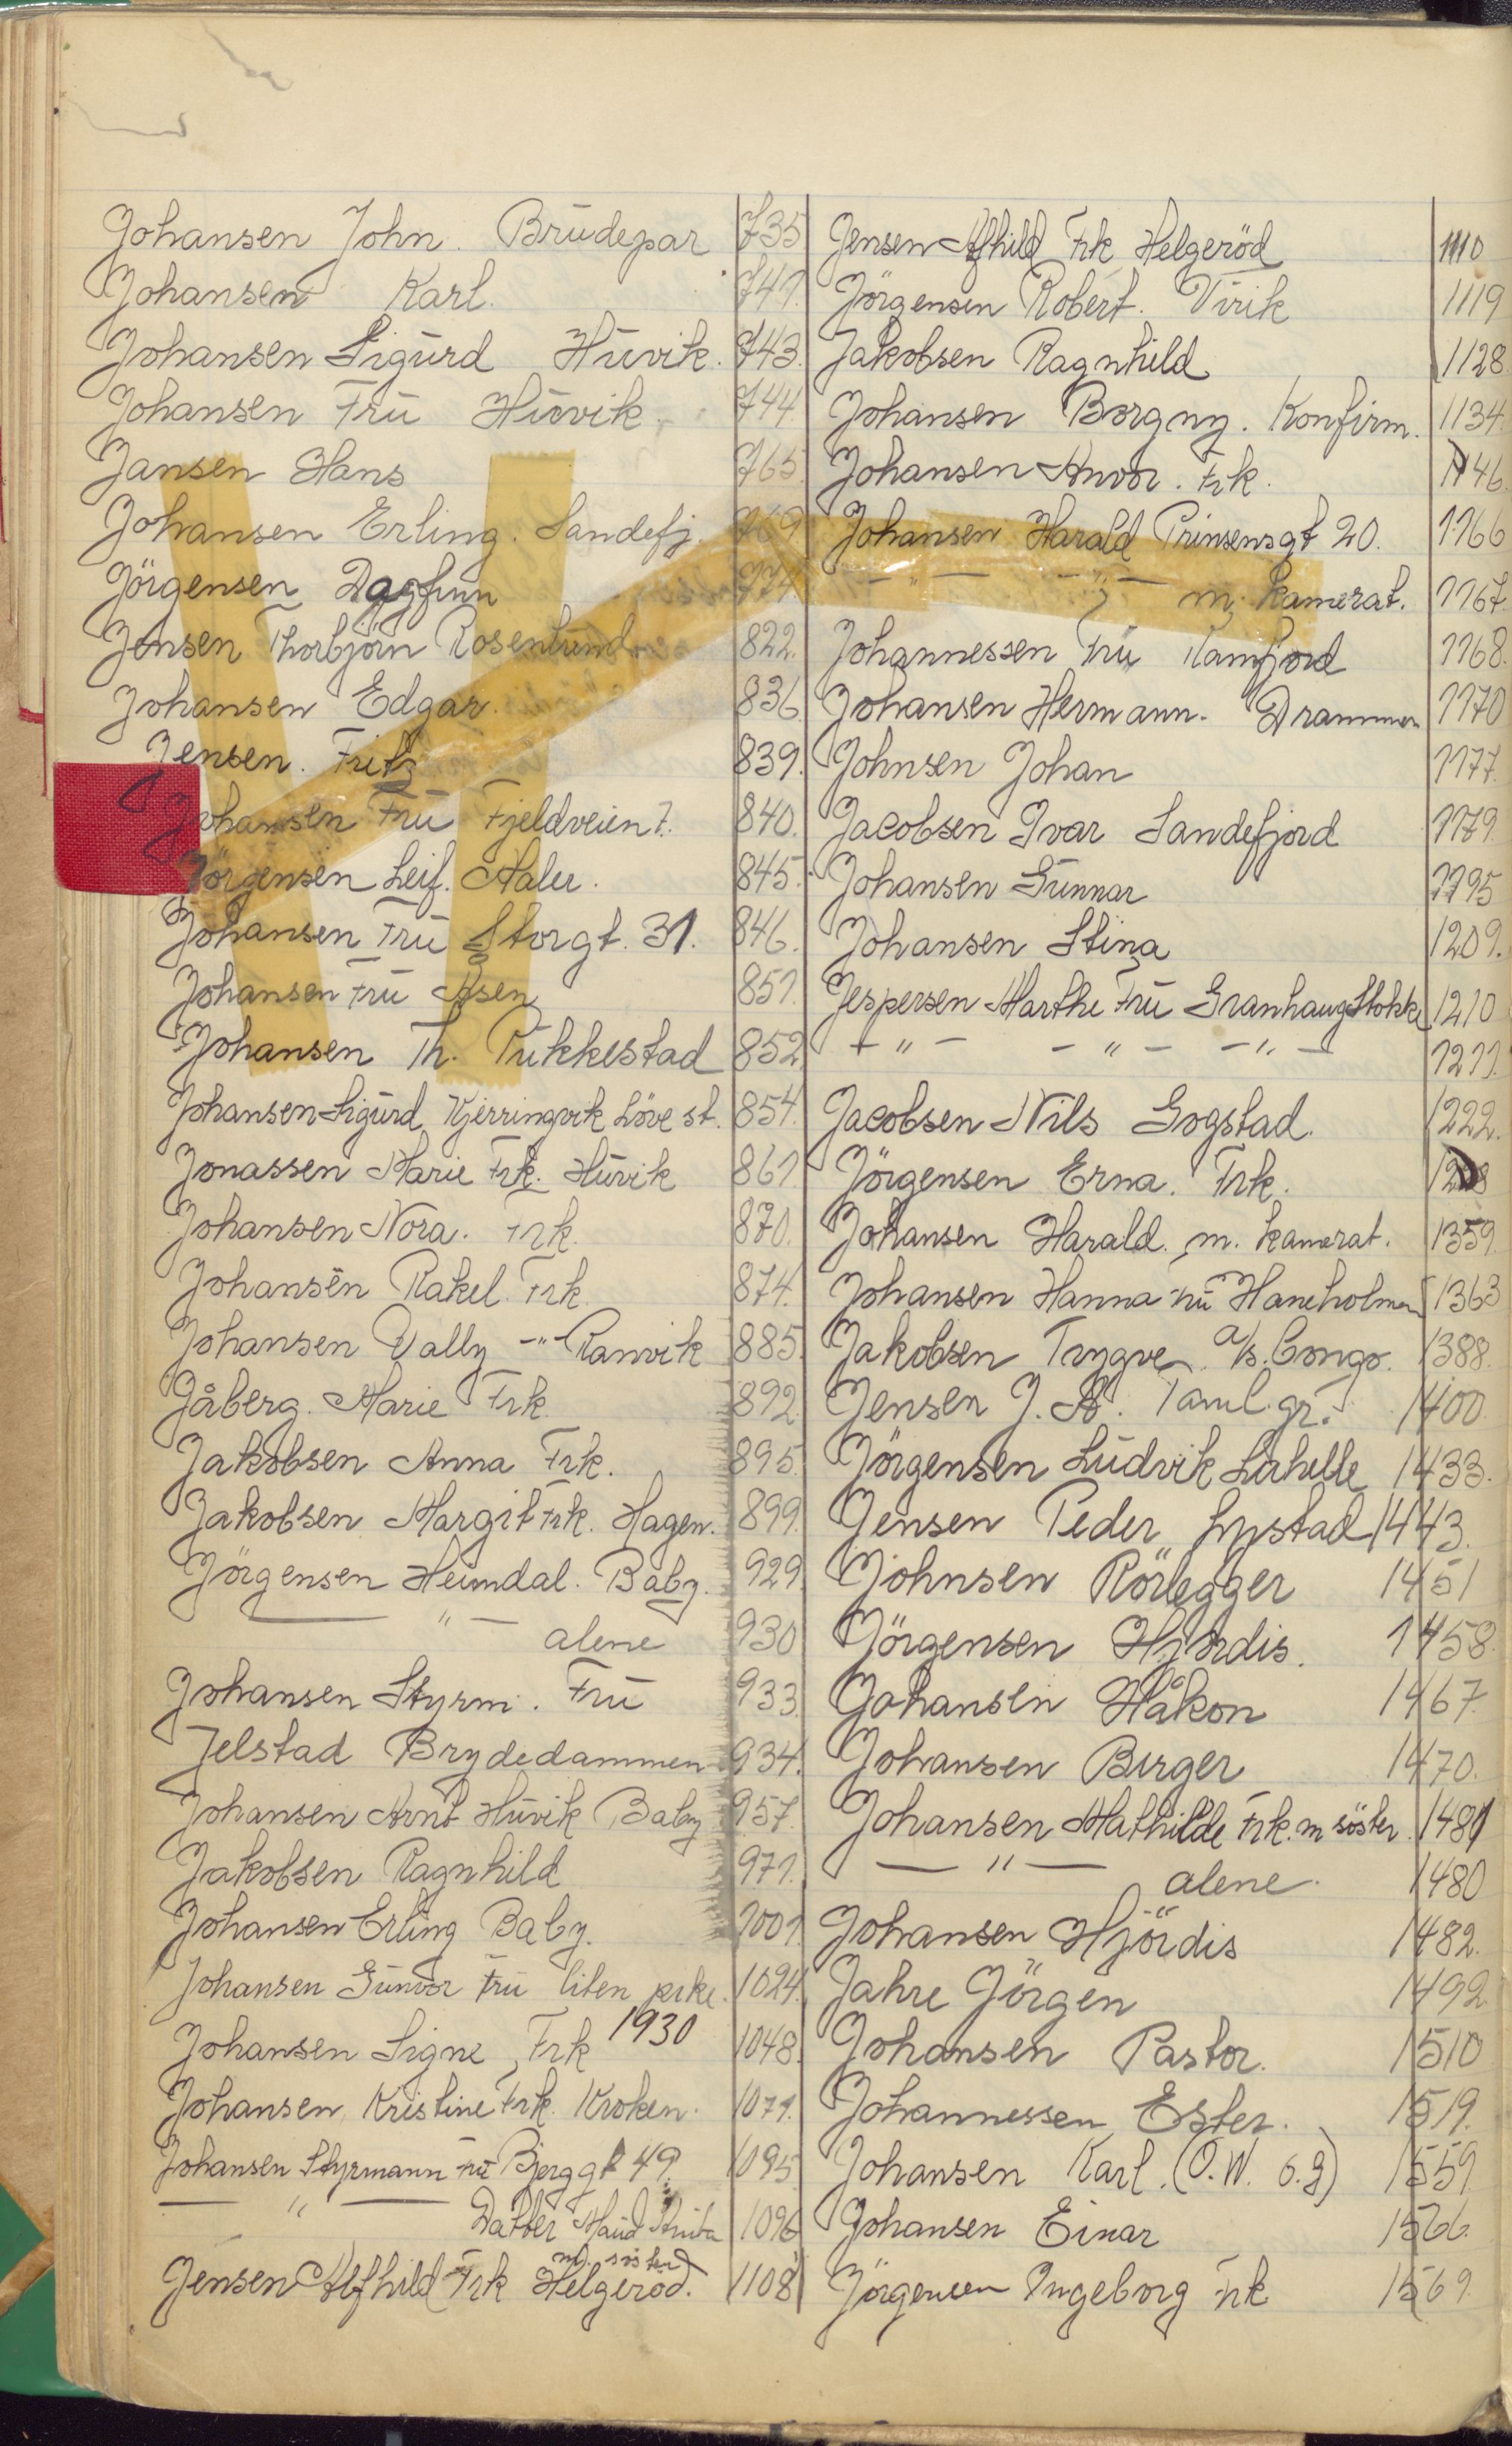 Johansen John. Brudepar 735
Johansen Karl. 741.
Johansen Sigurd Huvik. 743.
Johansen Fru Huvik. 744
Jansen Hans 765.
Johansen Erling. Sandefj. 769
Jörgensen Dagfinn 774
Jensen Thorbjörn Rosenlund 822.
Johansen Edgar. 836.
Jensen. Fritz 839.
Johansen Fru Fjeldveien 7. 840.
Jörgensen Leif. Maler. 845.
Johansen Fru Storgt. 31. 846.
Johansen Fru Åsen 851.
Johansen Th. Pukkestad 852.
Johansen Sigurd, Kjerringvik Löve st. 854.
Jonassen Marie Frk. Huvik 861.
Johansen Nora. Frk. 870.
Johansen Rakel. Frk. 874.
Johansen Vally -"- Ranvik 885.
Jåberg. Marie Frk. 892.
Jakobsen Anna Frk. 895.
Jakobsen Margit Frk. Hagen. 899.
Jörgensen Heimdal. Baby. 929.
— " — alene 930
Johansen Styrm. Fru 933.
Jelstad Brydedammen 934.
Johansen Arnt Huvik Baby 957.
Jakobsen Ragnhild 971.
Johansen Erling Baby. 1001.
Johansen Gunvor Fru liten pike. 1024.
1930
Johansen Signe, Frk 1048.
Johansen Kristine Frk. Kroken. 1071.
Johansen Styrmann Fru Bjerggt 49. 1095.
— " — Datter Maud 1096
m. söster
Jensen Alfhild Frk Helgeröd. 1108
Jensen Alfhild Frk Helgeröd 1110
Jörgensen Robert. Virik 1119
Jakobsen Ragnhild 1128.
Johansen Borgny. Konfirm. 1134.
Johansen Anvor. Frk. 1146.
Johansen Harald Prinsensgt 20. 1166
— " — — " — m. kamerat. 1167
Johannessen Fru Kamfjord 1168.
Johansen Hermann. Drammen 1170
Johnsen Johan 1177.
Jacobsen Ivar Sandefjord 1179.
Johansen Gunnar 1195
Johansen Stina 1209.
Jespersen Marthe Fru Granhaug Stokke 1210
— " — — " — — " — 1211.
Jacobsen Nils Gogstad. 1222.
Jörgensen Erna. Frk.
Johansen Harald. m. kamerat. 1359.
Johansen Hanna Fru Haneholmen 1363
Jakobsen Trygve. a/s. Congo. 1388.
Jensen J. A. Faml. gr. 1400
Jörgensen Ludvik Lahelle 1433.
Jensen Peder Lystad 1443.
Johnsen Rörlegger 1451
Jörgensen Hjördis. 1458.
Johansen Håkon 1467.
Johansen Birger 1470.
Johansen Mathilde Frk. m söster. 1481
— " — alene. 1480
Johansen Hjördis 1482.
Jahre Jörgen 1492
Johansen Pastor. 1510
Johannessen Ester. 1519.
Johansen Karl. (O.W. o.g) 1559.
Johansen Einar 1566.
Jörgensen Ingeborg Frk 1569.